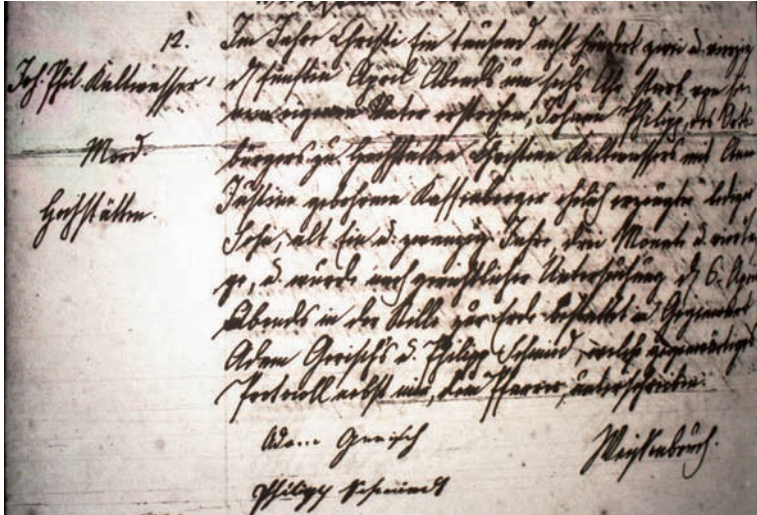 12. Im Jahre Christi Ein tausend acht hundert zwei u. vierzig
Joh. Phil. Kaltwasser, d. fünften April Abends um sechs Uhr starb, von sei-
nem eigenen Vater erstochen, Johann Philipp, des Orts-
Mord. bürgers zu Hochstätten Christian Kaltwassers mit Anna
Hochstätten. Justina gebohrne Kassenberger ehelich erzeugter lediger
Sohn, alt Ein u. zwanzig Jahre, drei Monate u. vier Ta-
ge, u. wurde nach gerichtlicher Untersuchung d. 6. April
Abends in der Stille zur Erde bestattet in Gegenwart
Adam Gerisch's u. Philipp Schmied, welche gegenwärtiges
Protocoll nebst mir, dem Pfarrer, unterschrieben.
Adam Gerisch
Philipp Schmiedt